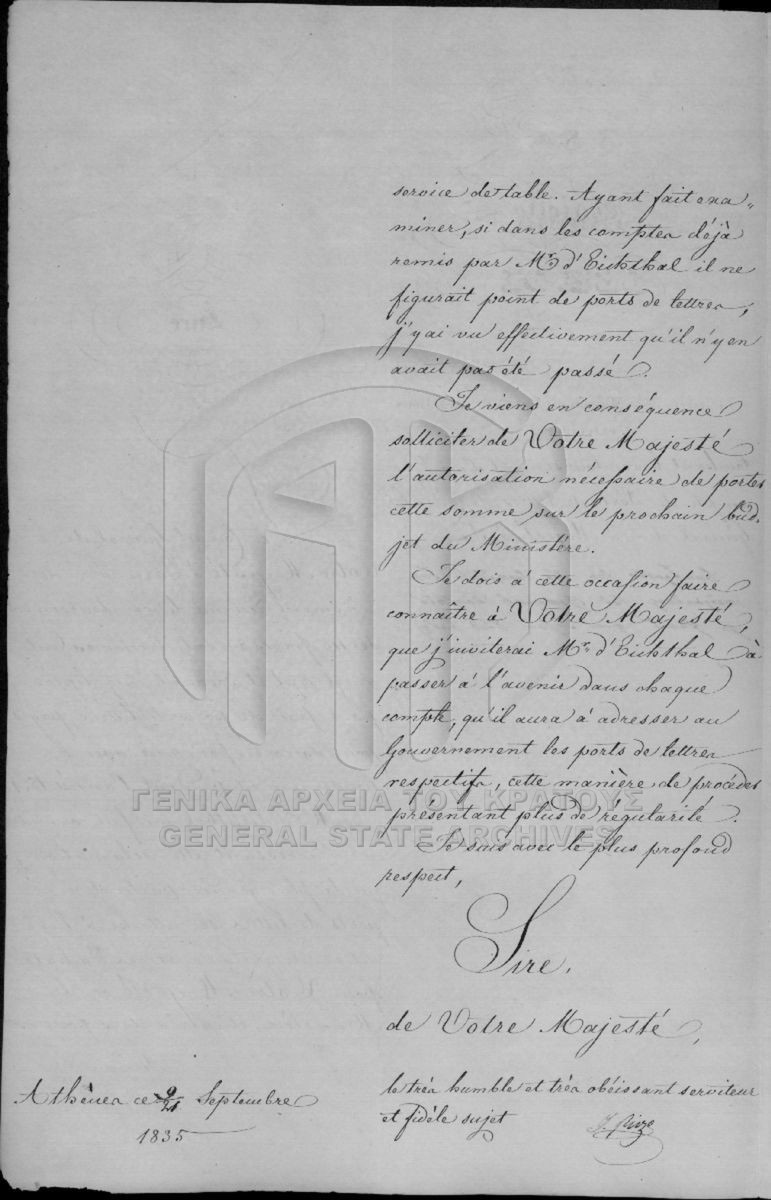 service de table. Ayant fait exa„
miner, si dans les comptes déjà
remis par Mr d'Eichthal il ne
figurait point de ports de lettres,
j'y ai vu effectivement qu'il n'y en
avait pas été passé.
Je viens en conséquence
solliciter de Votre Majesté
l'autorisation nécessaire de porter
cette somme sur le prochain bud-
jet du Ministère.
Je dois à cette occasion faire
connaître à Votre Majesté,
que j'inviterai Mr d'Eichthal à
passer à l'avenir dans chaque
compte, qu'il aura à adresser au
Gouvernement les ports de lettres
respectifs, cette manière de procéder
présentant plus de régularité.
Je suis avec le plus profond
respect,
Sire,
de Votre Majesté,
le très humble et très obéissant serviteur
et fidèle sujet
J. Rizo
Athènes ce 9/21 Septembre
1835
ΓΕΝΙΚΑ ΑΡΧΕΙΑ ΤΟΥ ΚΡΑΤΟΥΣ
GENERAL STATE ARCHIVES